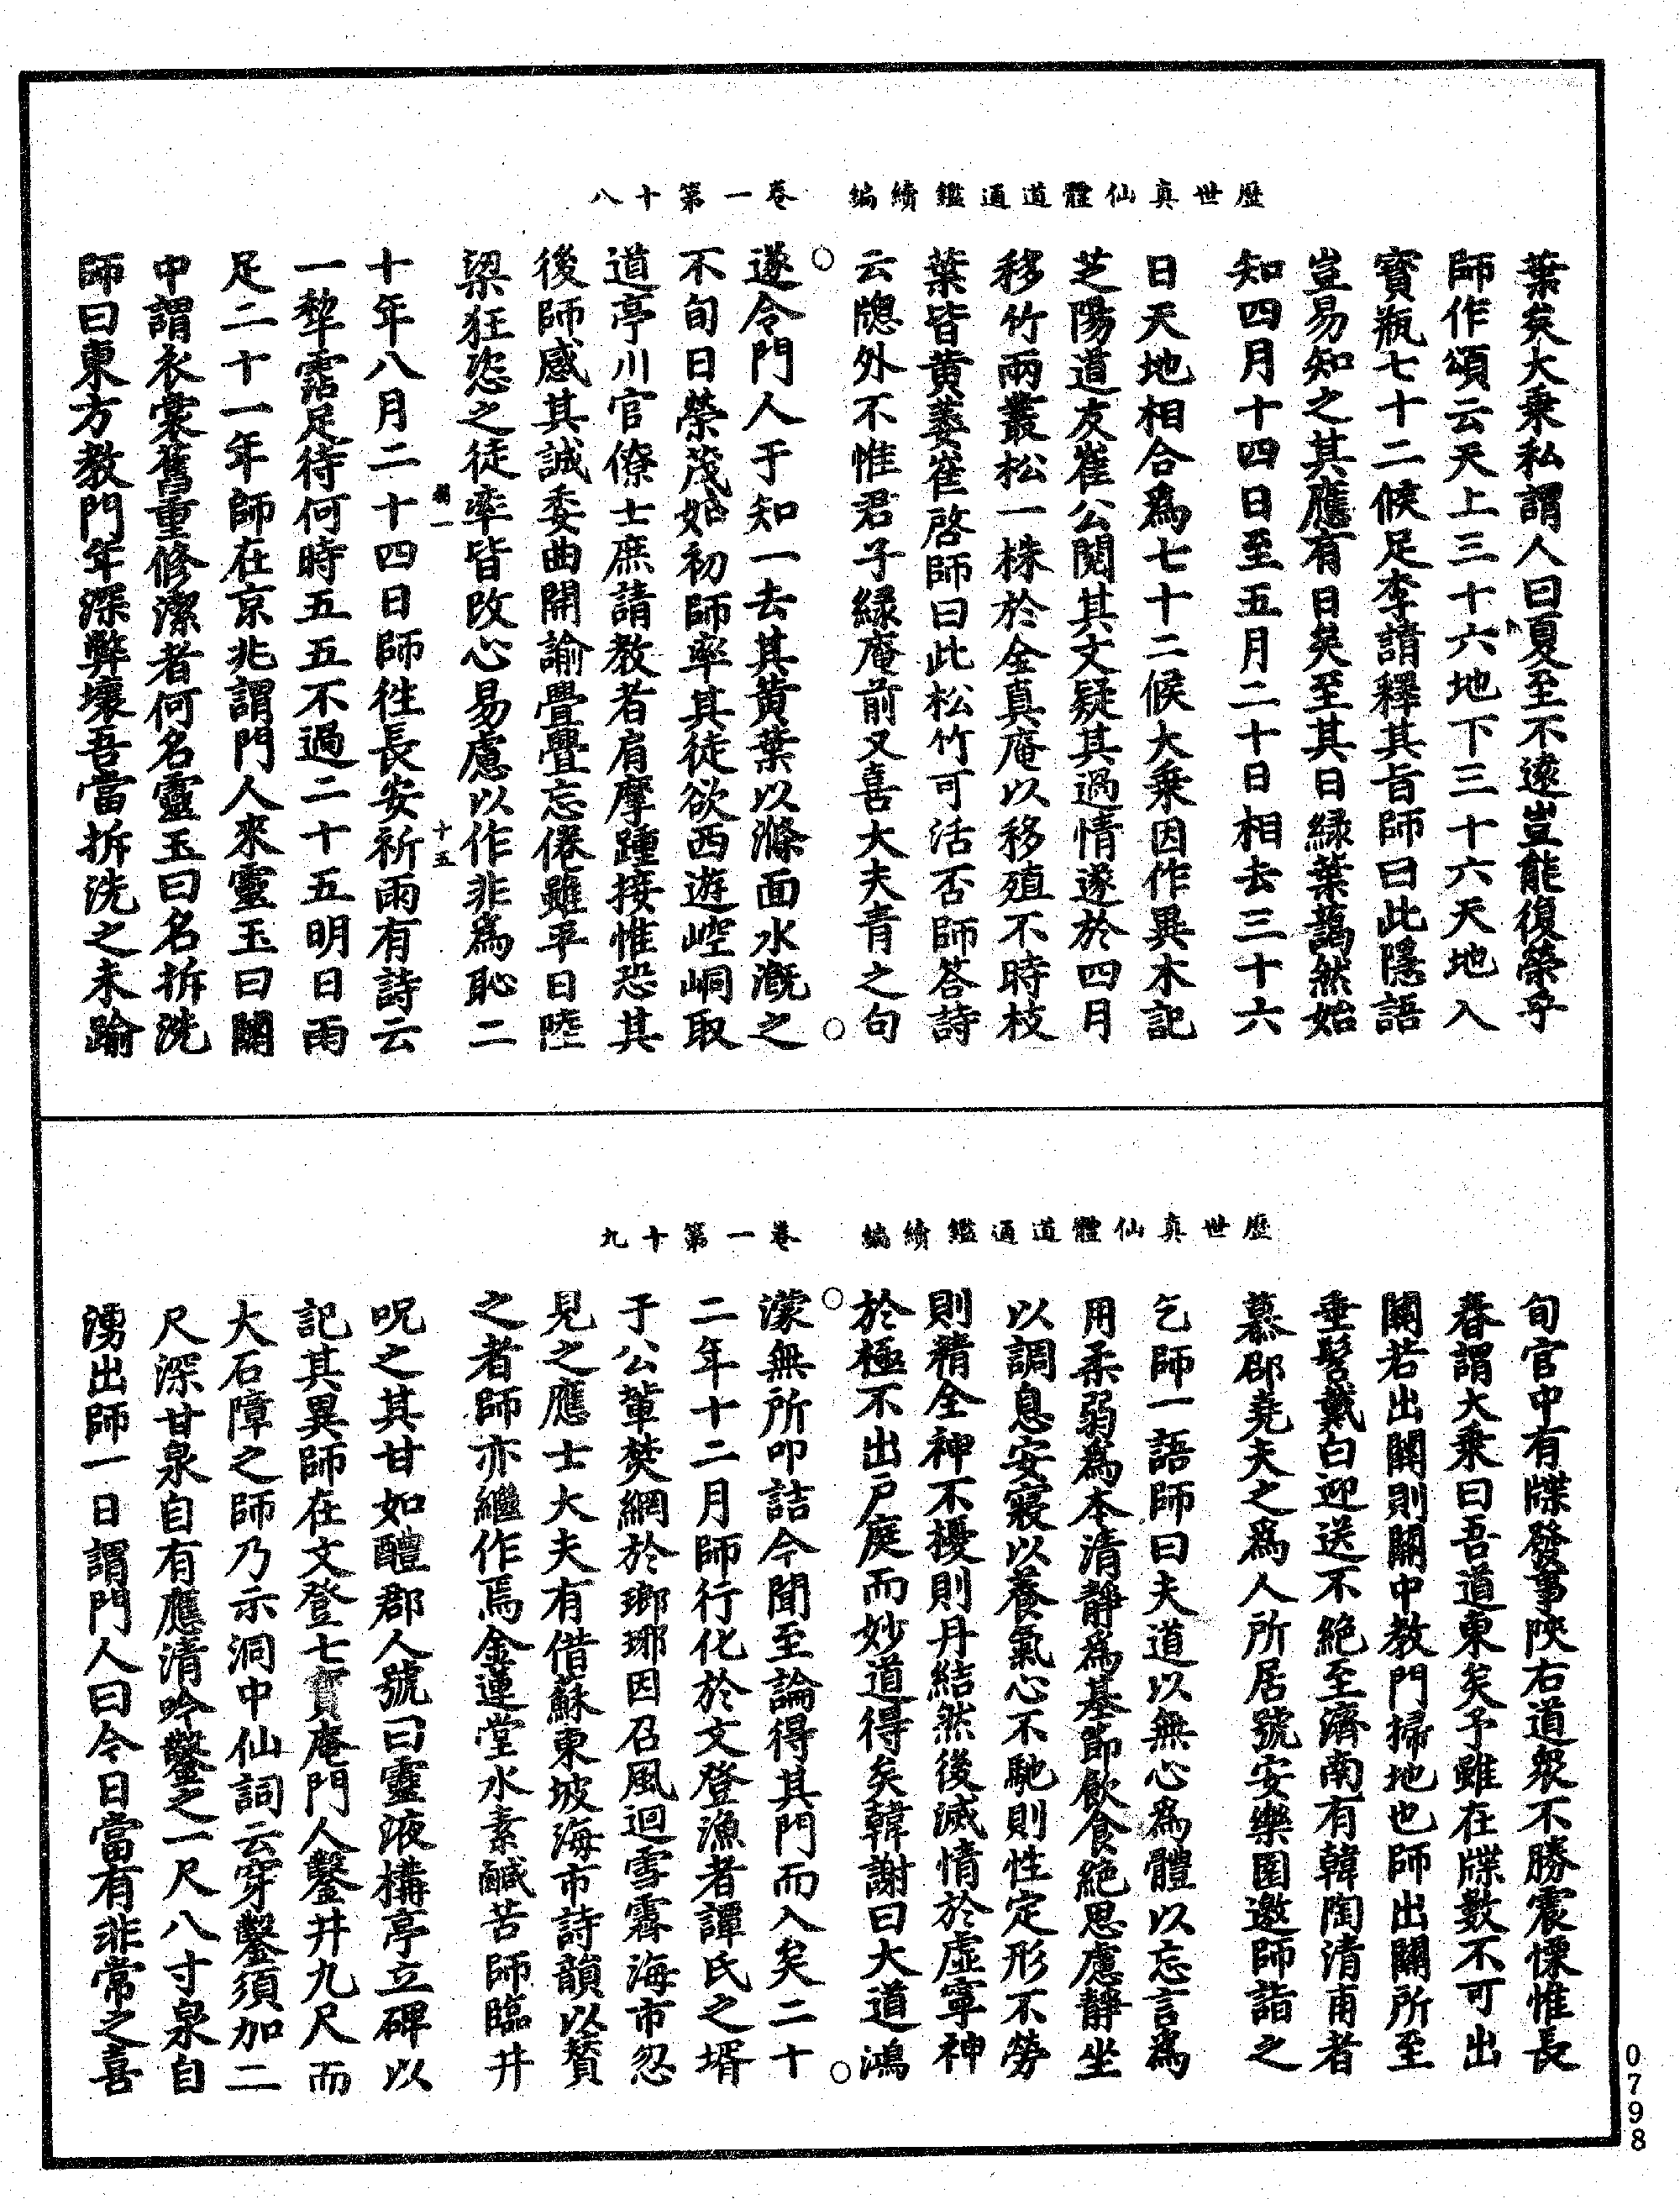 歷世真仙體道通鑑續編 卷一第十八
葉矣大乘私謂人曰夏至不遠豈能復榮乎
師作頌云天上三十六地下三十六天地入
寶瓶七十二候足李請釋其旨師曰此隱語
豈易知之其應有日矣至其日綠葉藹然始
知四月十四日至五月二十日相去三十六
日天地相合為七十二候大乘因作異木記
芝陽道友崔公閱其文疑其過情遂於四月
移竹兩叢松一株於全真庵以移殖不時枝
葉皆黄萎崔啓師曰此松竹可活否師答詩
云牕外不惟君子緑庵前又喜大夫青之句
遂令門人于知一去其黄葉以滌面水溉之
不旬日榮茂如初師率其徒欲西遊崆峒取
道亭川官僚士庶請教者肩摩踵接惟恐其
後師感其誠委曲開諭疊疊忘倦雖平日陸
梁狂恣之徒率皆改心易慮以作非為恥二
十年八月二十四日師往長安祈雨有詩云
一犂霑足待何時五五不過二十五明日雨
足二十一年師在京兆謂門人來靈玉曰關
中謂衣裳舊重修潔者何名靈玉曰名拆洗
師曰東方教門年深弊壞吾當拆洗之未踰
歷世真仙體道通鑑續編 卷一第十九
旬官中有牒發事陝右道衆不勝震慄惟長
春謂大乘曰吾道東矣予雖在牒數不可出
關若出關則關中教門掃地也師出關所至
垂髫戴白迎送不絕至濟南有韓陶清甫者
慕邵堯夫之為人所居號安樂園邀師詣之
乞師一語師曰夫道以無心為體以忘言為
用柔弱為本清靜為基節飲食絕思慮靜坐
以調息安寢以養氣心不馳則性定形不勞
則精全神不擾則丹結然後滅情於虛寧神
於極不出戶庭而妙道得矣韓謝曰大道鴻
濛無所叩詰今聞至論得其門而入矣二十
二年十二月師行化於文登漁者譚氏之壻
于公輩焚網於瑯琊因召風迴雪霽海市忽
見之應士大夫有借蘇東坡海市詩韻以贊
之者師亦繼作焉金蓮堂水素鹹苦師臨井
呪之其甘如醴郡人號曰靈液構亭立碑以
記其異師在文登七寶庵門人鑿井九尺而
大石障之師乃示洞中仙詞云穿鑿須加二
尺深甘泉自有應清吟鑿之一尺八寸泉自
湧出師一日謂門人曰今日當有非常之喜
0798